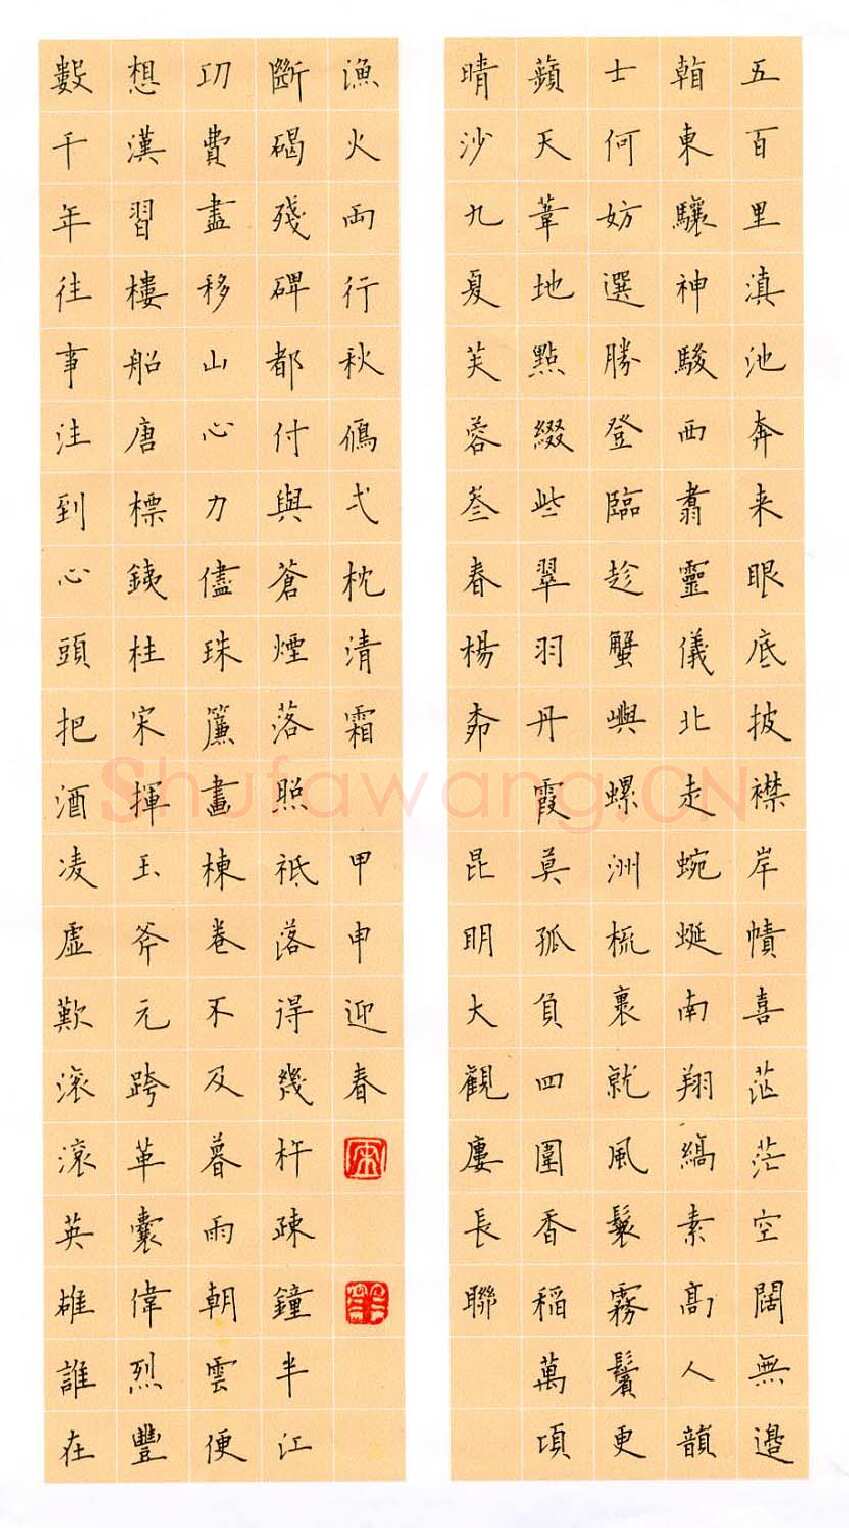 五百里滇池奔来眼底披襟岸幘喜茫茫空闊無邊
看東驤神駿西翥靈儀北走蜿蜒南翔縞素高人韻
士何妨選勝登臨趁蟹嶼螺洲梳裹就風鬟霧鬢更
蘋天葦地點綴些翠羽丹霞莫孤負四圍香稻萬頃
晴沙九夏芙蓉叁春楊桺 昆明大觀廔長聯
數千年往事注到心頭把酒凌虛歎滾滾英雄誰在
想漢習樓船唐標銕柱宋揮玉斧元跨革囊偉烈豐
功費盡移山心力儘珠簾畫棟卷不及暮雨朝雲便
斷碣殘碑都付與蒼煙落照祇落得幾杵疎鐘半江
漁火兩行秋鴈弌枕清霜 甲申迎春
Shufawang.CN